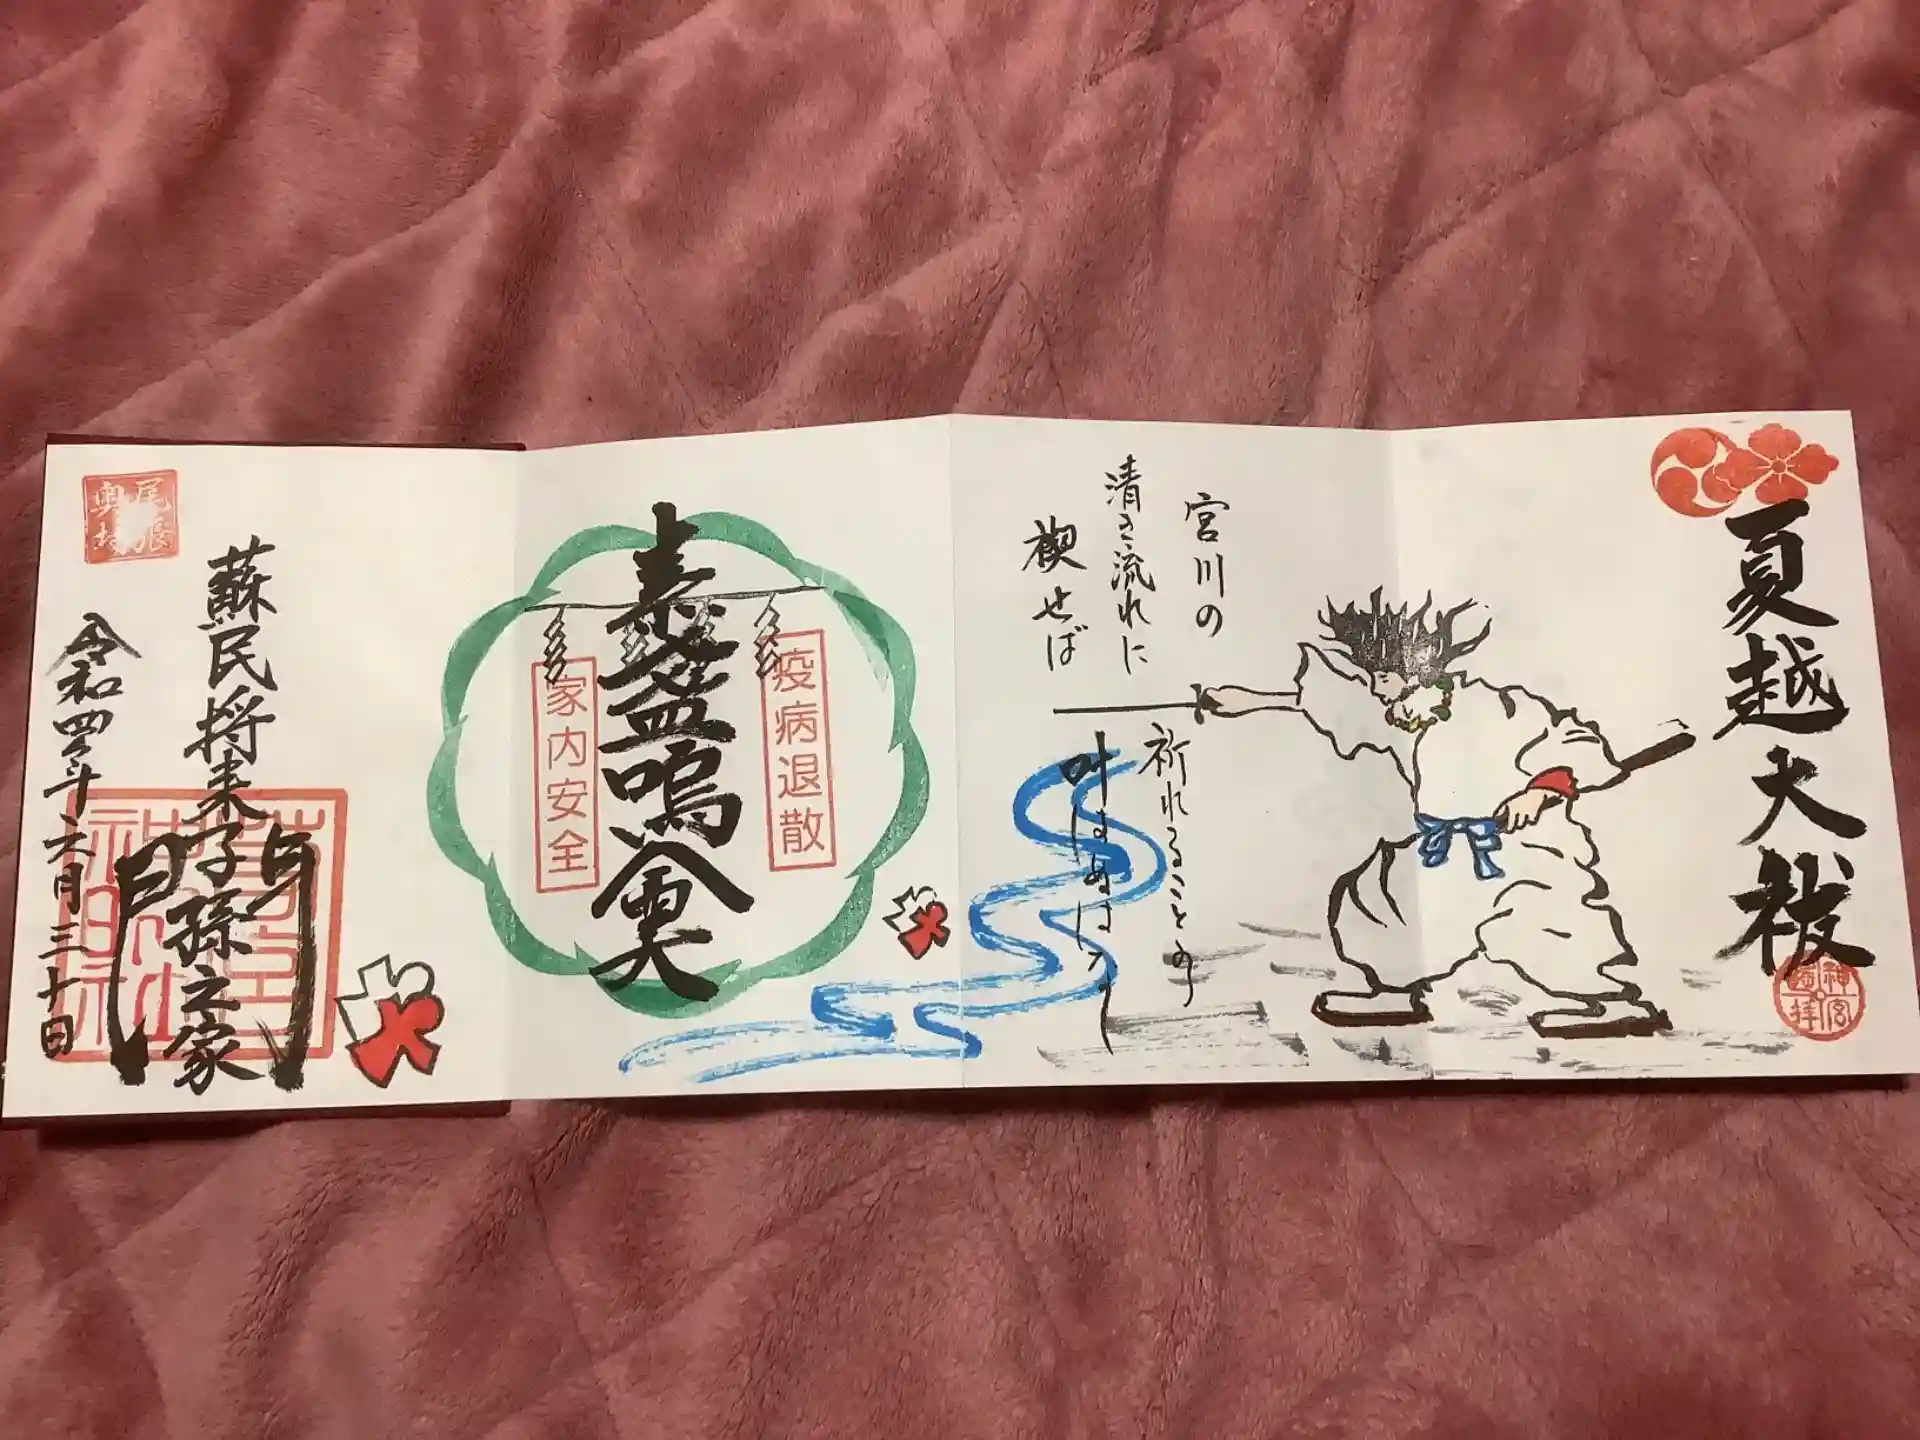 夏越大祓
宮川の
清き流れに
禊せば
祈れることの
叶はぬはなし
疫病退散
素盞嗚尊
家内安全
蘇民将来子孫之家門
令和四年六月三十日
尾張
奥村